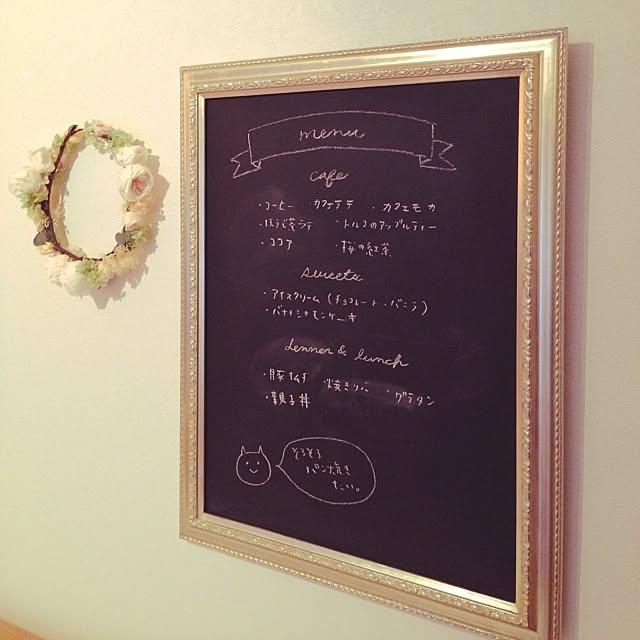 menu
cafe
・コーヒー カフェラテ ・カフェモカ
・ほうじ茶ラテ ・トルコのアップルティー
・ココア ・桜の紅茶
sweets
・アイスクリーム (チョコレート・バニラ)
・バナナシナモンケーキ
denner & lunch
・豚キムチ 焼きソバ ・グラタン
・親子丼
そろそろ
パン焼き
たい。